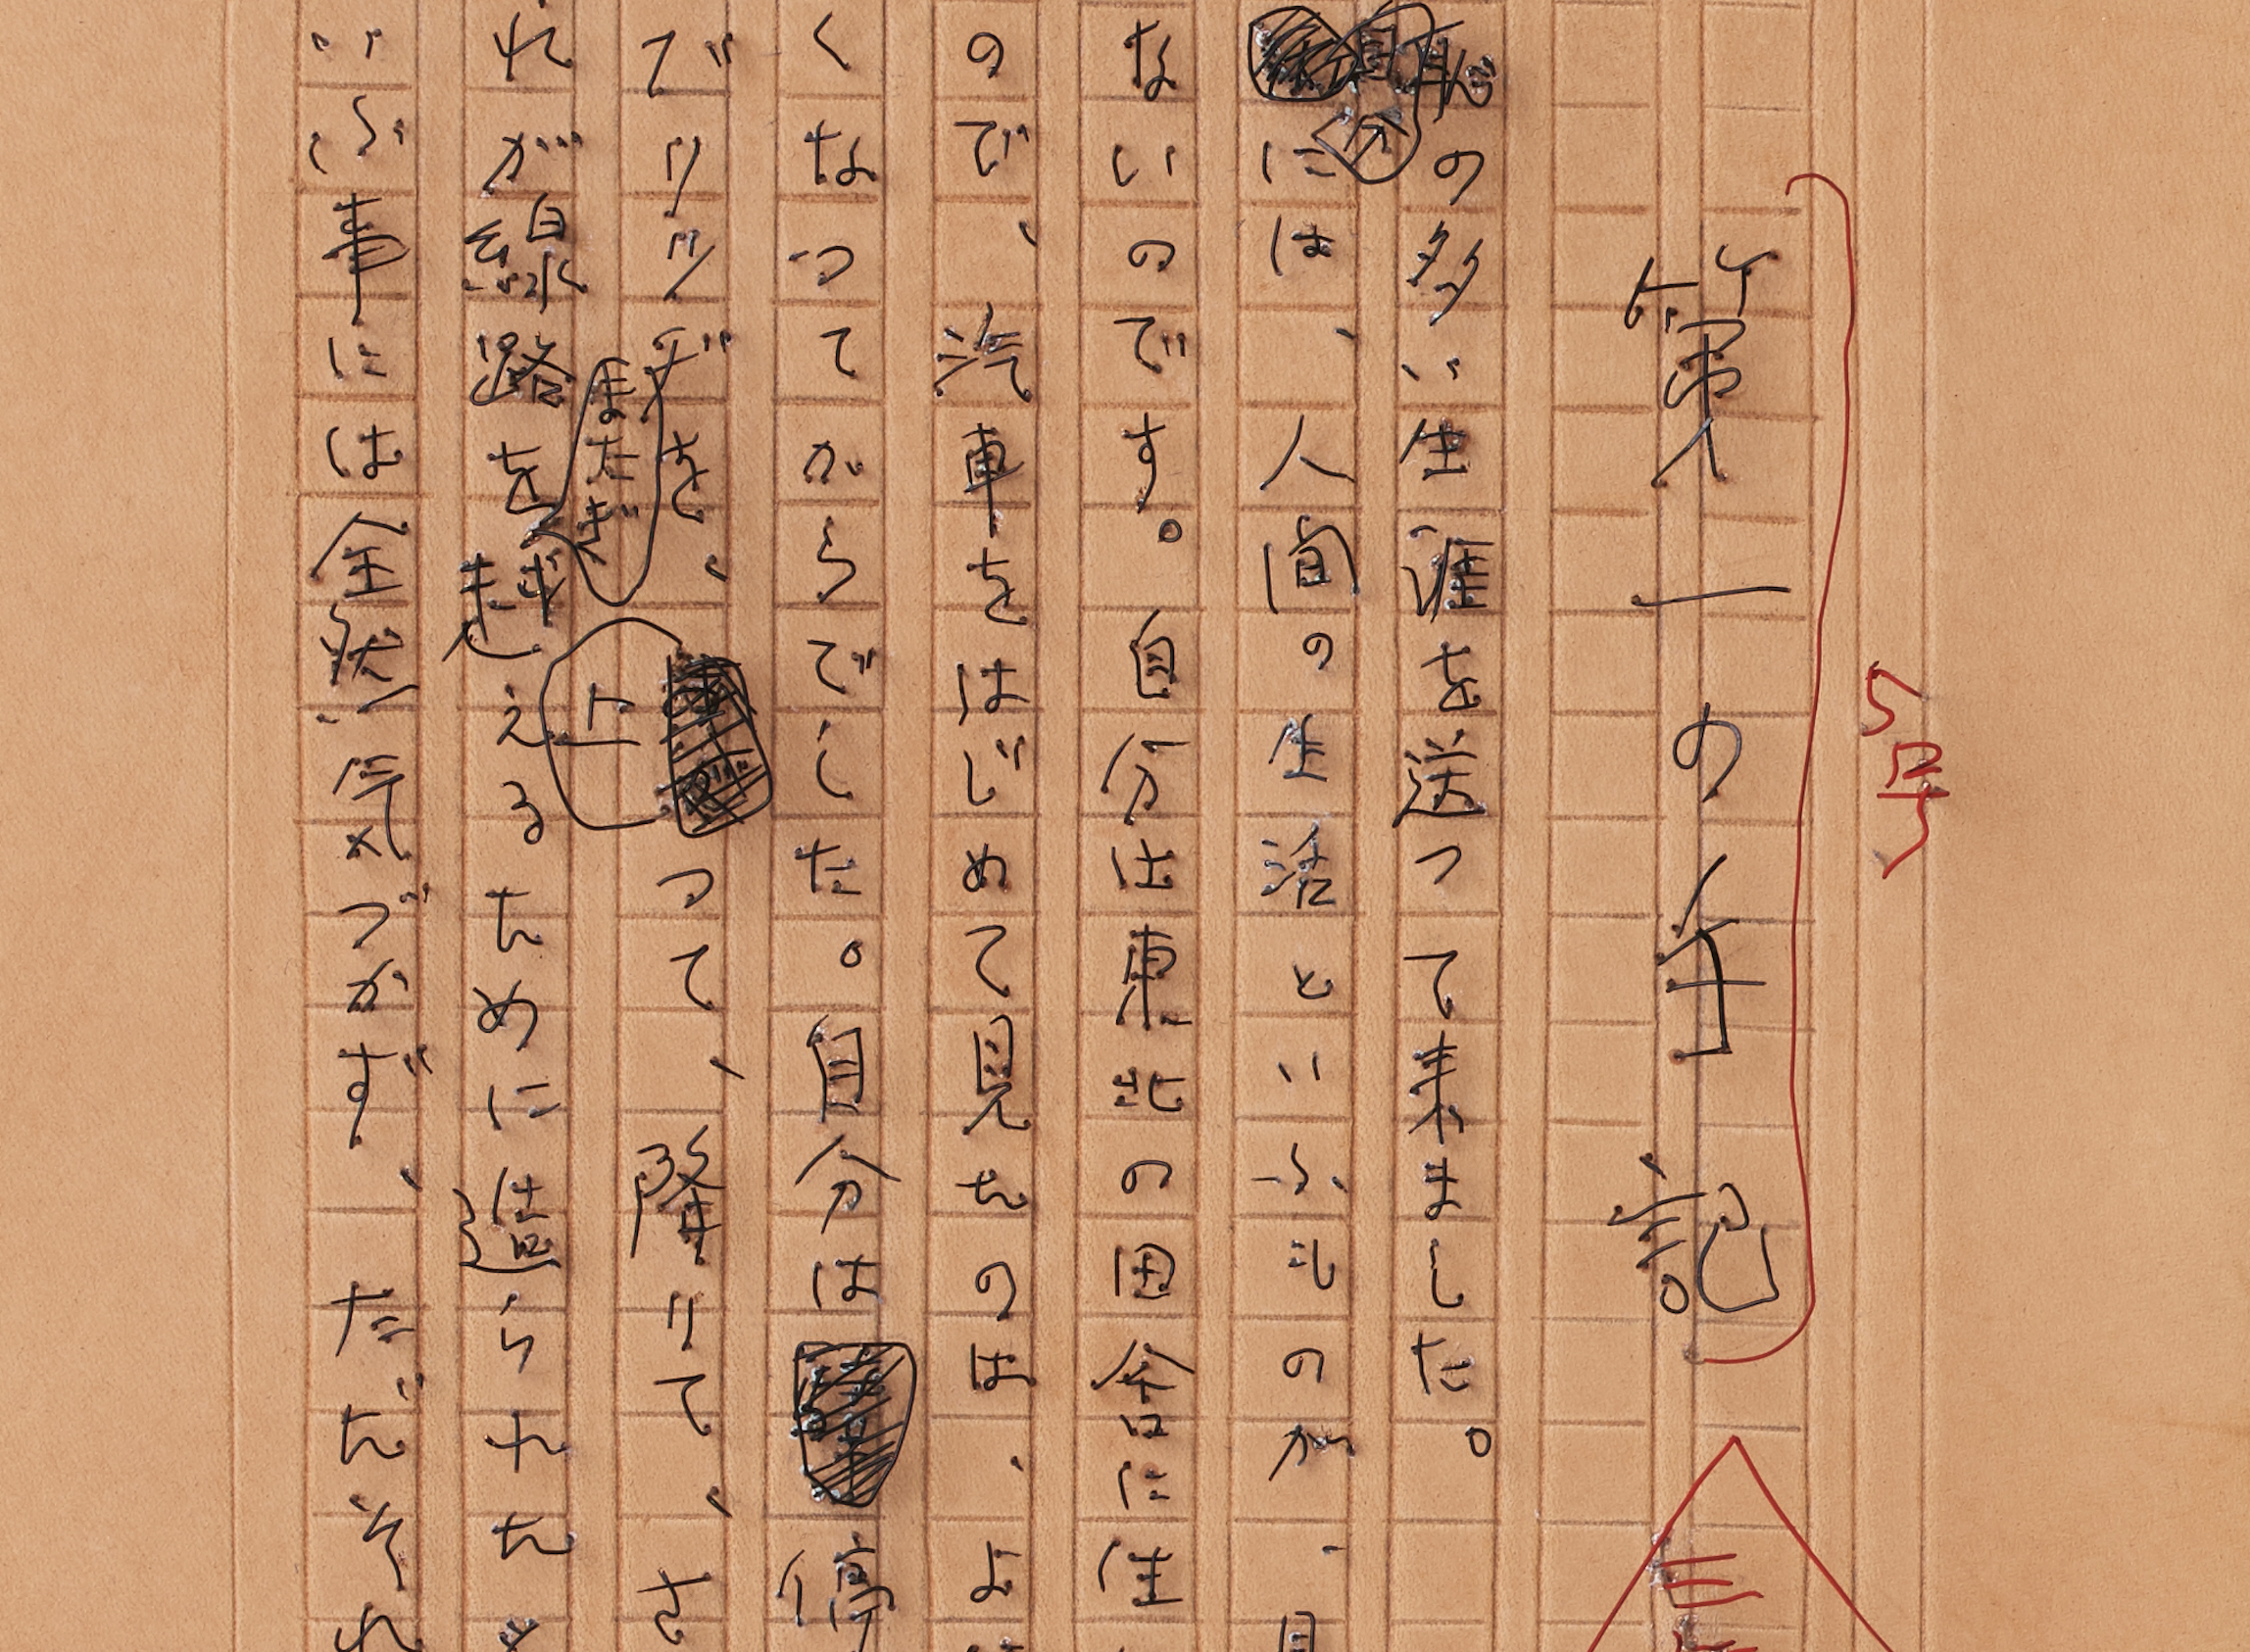 5号
第一の手記
恥の多い生涯を送つて来ました。
自分には、人間の生活といふものが、見
ないのです。自分は東北の田舎に生
ので、汽車をはじめて見たのは、よ
くなつてからでした。自分は停
でブリッヂを、上つて、降りて、さ
れが線路をまたぎ越えるために造られた
いふ事には全然気づかず、ただそれ